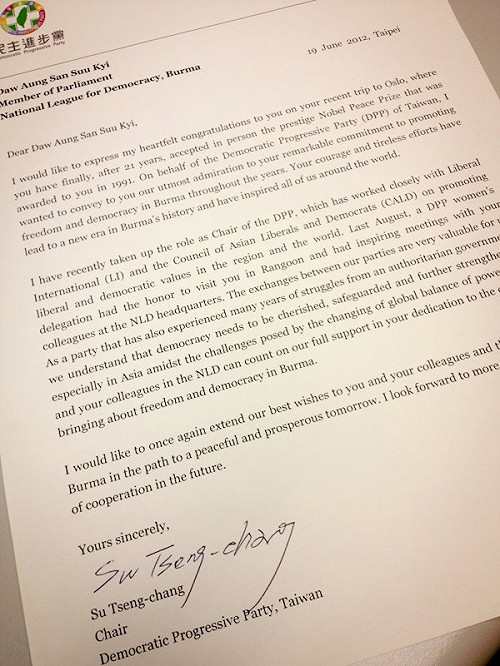 民主進步黨
Democratic Progressive Party
19 June 2012, Taipei
Daw Aung San Suu Kyi
Member of Parliament
National League for Democracy, Burma
Dear Daw Aung San Suu Kyi,
I would like to express my heartfelt congratulations to you on your recent trip to Oslo, where
you have finally, after 21 years, accepted in person the prestige Nobel Peace Prize that was
awarded to you in 1991. On behalf of the Democratic Progressive Party (DPP) of Taiwan, I
wanted to convey to you our utmost admiration to your remarkable commitment to promoting
freedom and democracy in Burma throughout the years. Your courage and tireless efforts have
lead to a new era in Burma's history and have inspired all of us around the world.
I have recently taken up the role as Chair of the DPP, which has worked closely with Liberal
International (LI) and the Council of Asian Liberals and Democrats (CALD) on promoting
liberal and democratic values in the region and the world. Last August, a DPP women's
delegation had the honor to visit you in Rangoon and had inspiring meetings with your
colleagues at the NLD headquarters. The exchanges between our parties are very valuable for
As a party that has also experienced many years of struggles from an authoritarian
we understand that democracy needs to be cherished, safeguarded and further
especially in Asia amidst the challenges posed by the changing of global balance of
and your colleagues in the NLD can count on our full support in your dedication to the
bringing about freedom and democracy in Burma.
I would like to once again extend our best wishes to you and your colleagues and
Burma in the path to a peaceful and prosperous tomorrow. I look forward to more
of cooperation in the future.
Yours sincerely,
Su Tseng-chang
Su Tseng-chang
Chair
Democratic Progressive Party, Taiwan